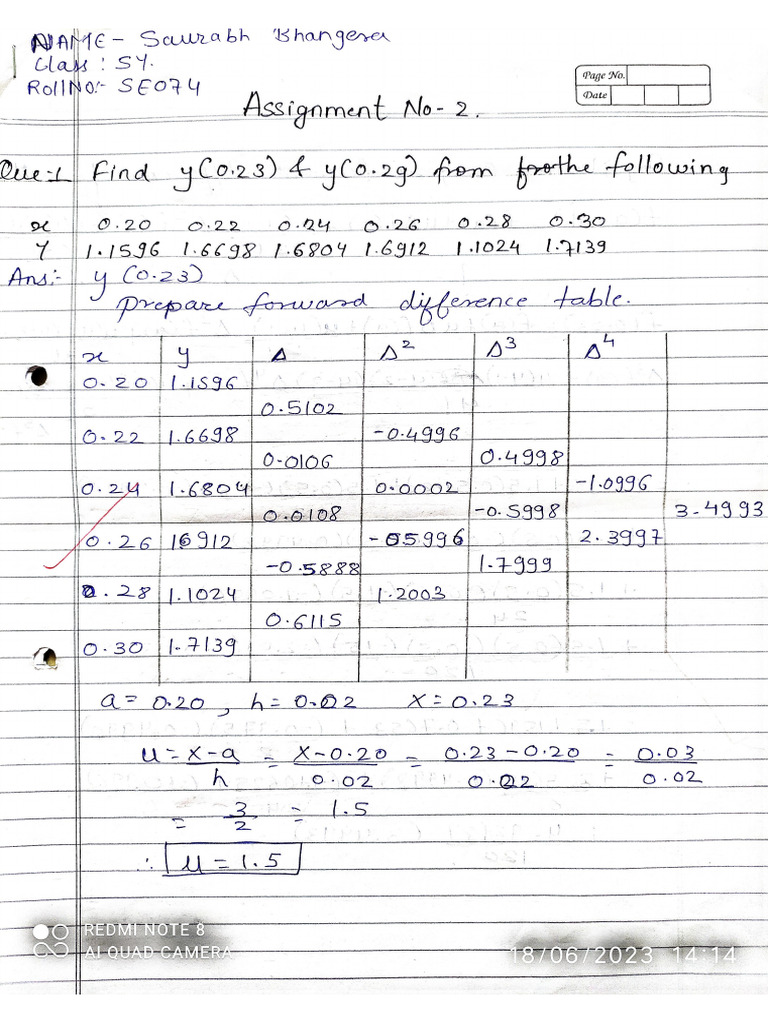 NAME - Saurabh Bhangera
Class : SY.
Roll NO:- SE074
Page No.
Date
Assignment No - 2.
Que:1 Find y(0.23) & y(0.29) from the following
x 0.20 0.22 0.24 0.26 0.28 0.30
Y 1.1596 1.6698 1.6804 1.6912 1.1024 1.7139
Ans:- y (0.23)
prepare forward difference table.
x y Δ Δ² Δ³ Δ⁴
0.20 1.1596
0.5102
0.22 1.6698 -0.4996
0.0106 0.4998
0.24 1.6804 0.0002 -1.0996
0.0108 -0.5998 3.4993
0.26 16912 -05996 2.3997
-0.5888 1.7999
0.28 1.1024 1.2003
0.6115
0.30 1.7139
a = 0.20 , h = 0.02 X = 0.23
u = x-a / h = X-0.20 / 0.02 = 0.23-0.20 / 0.02 = 0.03 / 0.02
= 3/2 = 1.5
∴ u = 1.5
REDMI NOTE 8
AI QUAD CAMERA
18/06/2023 14:14